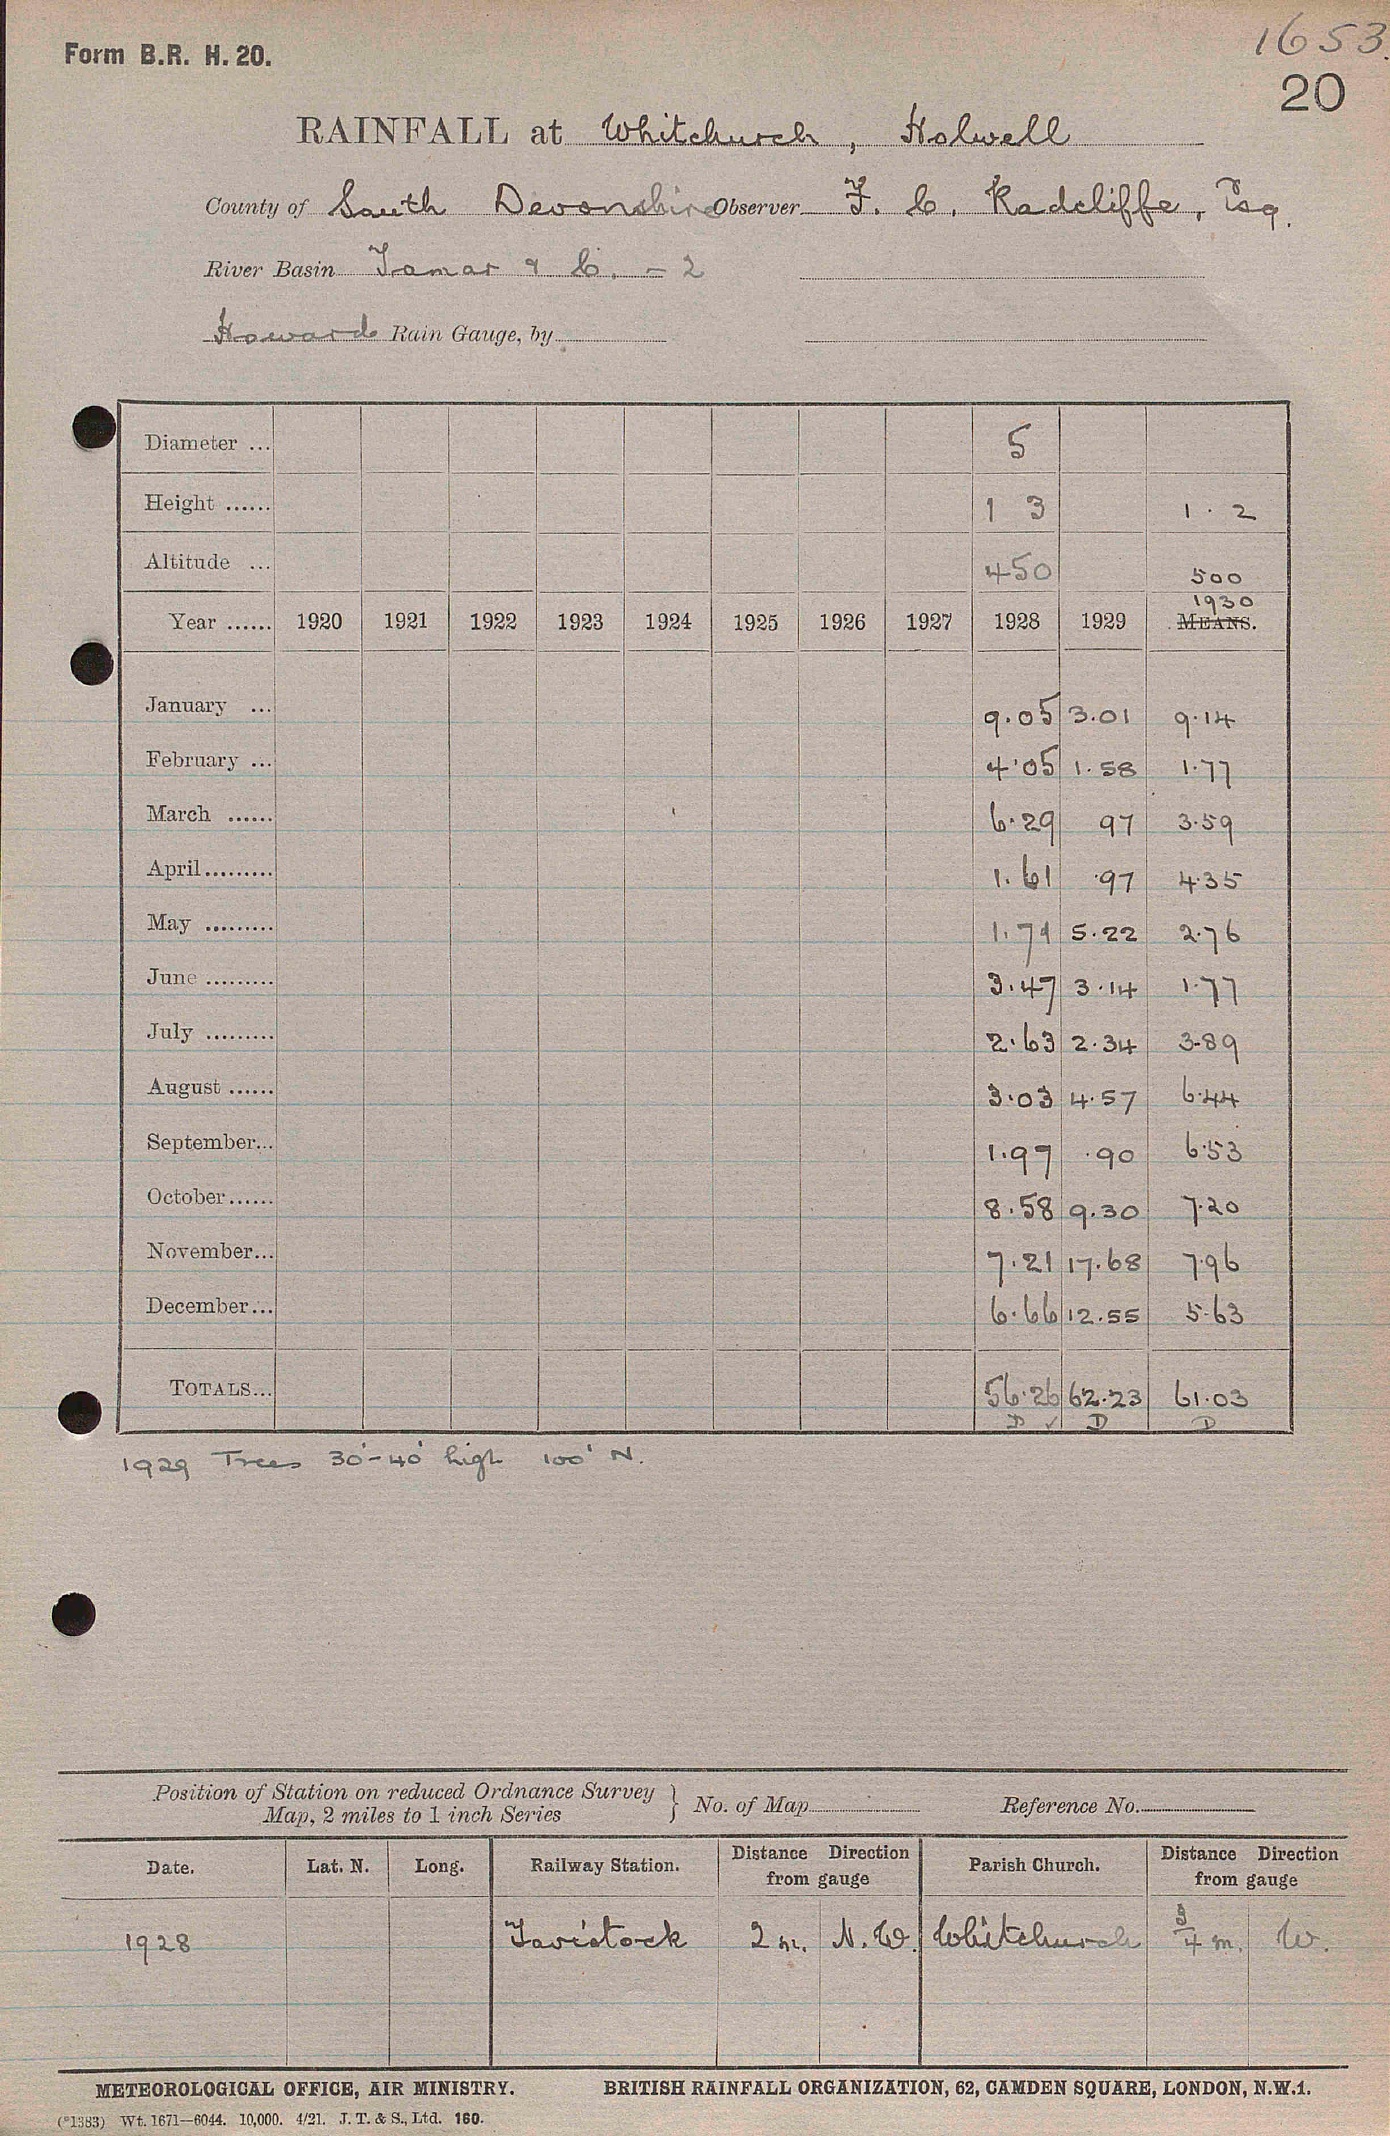 Form B.R. H. 20.
1653.
20
RAINFALL at Whitchurch, Holwell
County of South Devonshire Observer F. C. Radcliffe, Esq.
River Basin Tamar & C. - 2
Howard Rain Gauge, by
Diameter ... 5
Height ...... 1 3 1 . 2
Altitude ... 450 500
1930
Year ...... 1920 1921 1922 1923 1924 1925 1926 1927 1928 1929 MEANS.
January ... 9.05 3.01 9.14
February ... 4.05 1.58 1.77
March ...... 6.29 97 3.59
April ......... 1.61 .97 4.35
May ......... 1.71 5.22 2.76
June ......... 3.47 3.14 1.77
July ......... 2.63 2.34 3.89
August ...... 3.03 4.57 6.44
September... 1.97 .90 6.53
October ...... 8.58 9.30 7.20
November... 7.21 17.68 7.96
December... 6.66 12.55 5.63
TOTALS... 56.26 62.23 61.03
D ✓ D D
1929 Trees 30'-40' high 100' N.
Position of Station on reduced Ordnance Survey
Map, 2 miles to 1 inch Series } No. of Map Reference No.
Date. Lat. N. Long. Railway Station. Distance from gauge Direction Parish Church. Distance from gauge Direction
1928 Tavistock 2 m. N.W. Whitchurch 3/4 m. W.
METEOROLOGICAL OFFICE, AIR MINISTRY. BRITISH RAINFALL ORGANIZATION, 62, CAMDEN SQUARE, LONDON, N.W.1.
(*1383) Wt. 1671—6044. 10,000. 4/21. J. T. & S., Ltd. 160.